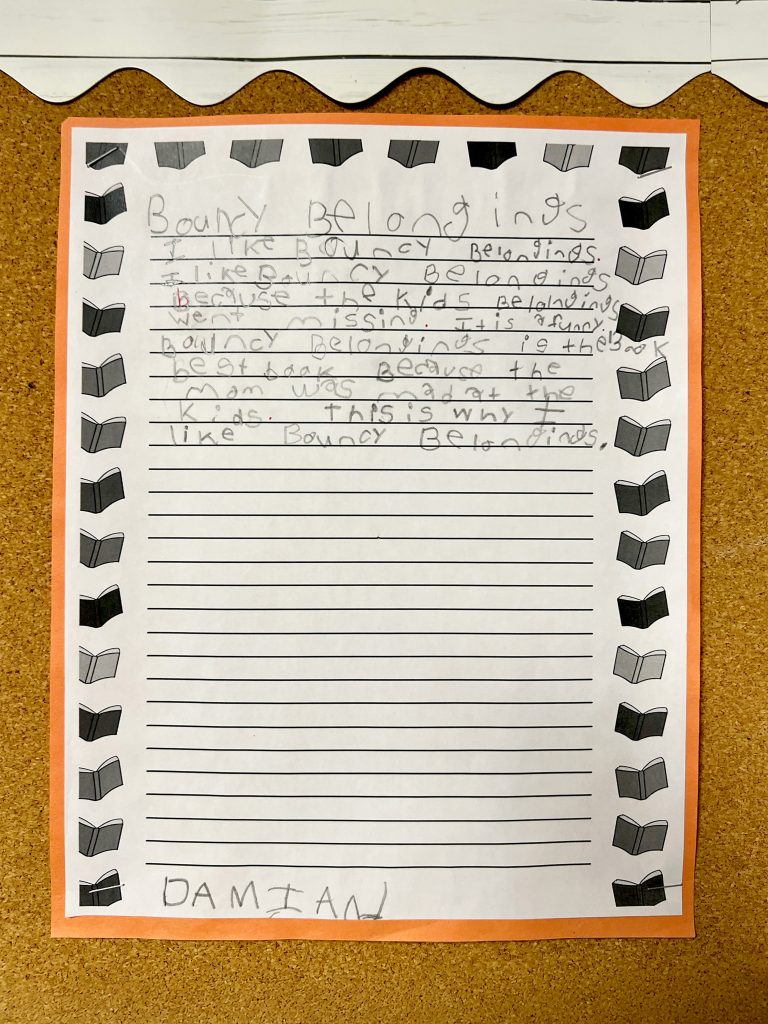 Bouncy Belongings
I like Bouncy Belongings.
I like Bouncy Belongings
because the kids Belongings
went missing. It is a funny
Bouncy Belongings is the Book
best book Because the
mom was mad at the
kids. This is why I
like Bouncy Belongings.
DAMIAN